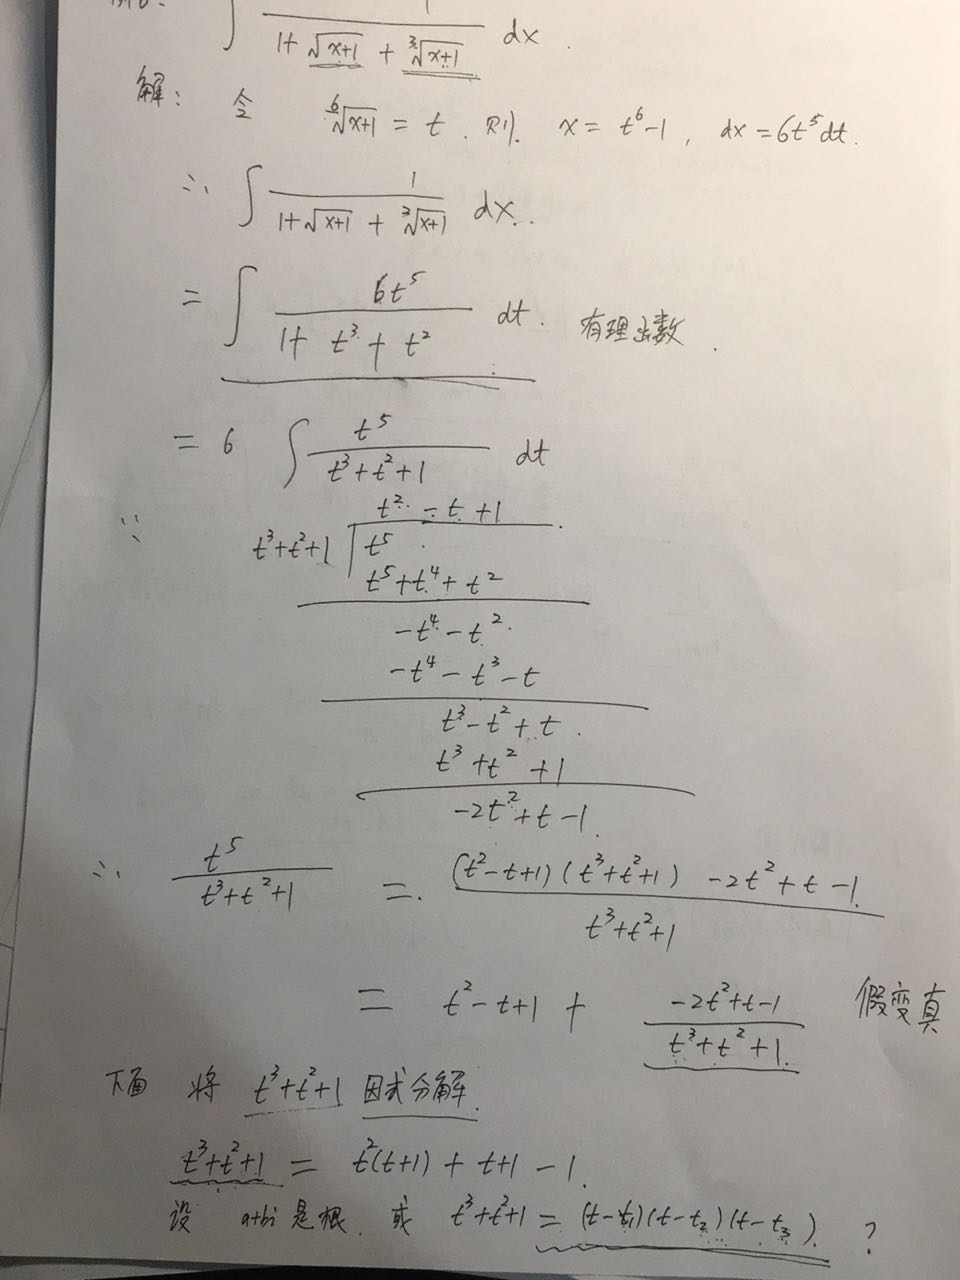 ∫ 1/(1+√(x+1) + ∛(x+1)) dx .
解: 令 ⁶√(x+1) = t . 则. x = t⁶-1 , dx = 6t⁵dt.
∴ ∫ 1/(1+√(x+1) + ∛(x+1)) dx.
= ∫ 6t⁵/(1+ t³ + t²) dt. 有理函数 .
= 6 ∫ t⁵/(t³+t²+1) dt
t² - t +1
∵ t³+t²+1 | t⁵
t⁵+t⁴+t²
-t⁴-t²
-t⁴-t³-t
t³-t²+t.
t³+t²+1
-2t²+t-1.
∴ t⁵/(t³+t²+1) = ((t²-t+1)(t³+t²+1) -2t²+t-1)/(t³+t²+1)
= t²-t+1 + (-2t²+t-1)/(t³+t²+1) 假变真
下面 将 t³+t²+1 因式分解.
t³+t²+1 = t²(t+1) + t+1 -1.
设 a+bi 是根. 或 t³+t²+1 = (t-t₁)(t-t₂)(t-t₃). ?